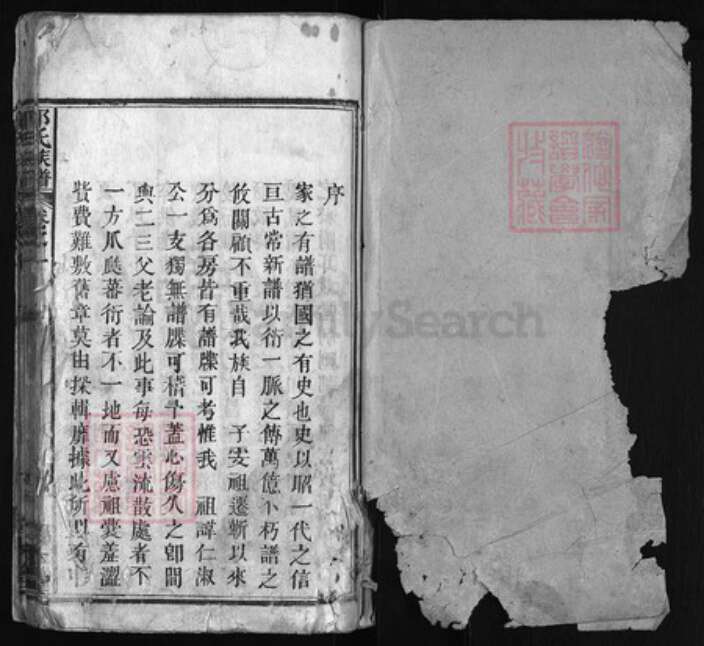 序
家之有譜猶國之有史也史以昭一代之信
亘古常新譜以衍一脈之傳萬億不朽譜之
攸關顧不重哉我族自 子安祖遷蘄以來
分為各房皆有譜牒可考惟我 祖諱仁淑
公一支獨無譜牒可稽予蓋心傷久之卽間
與二三父老論及此事每恐雲流散處者不
一方瓜瓞蕃衍者不一地而又慮祖囊羞澀
貲費難敷舊章莫由採輯靡據此所以有
氏族譜
卷之一
FamilySearch